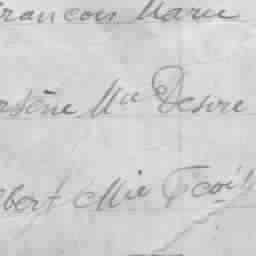 François Marie
Arsène Mie Desire
Albert Mie